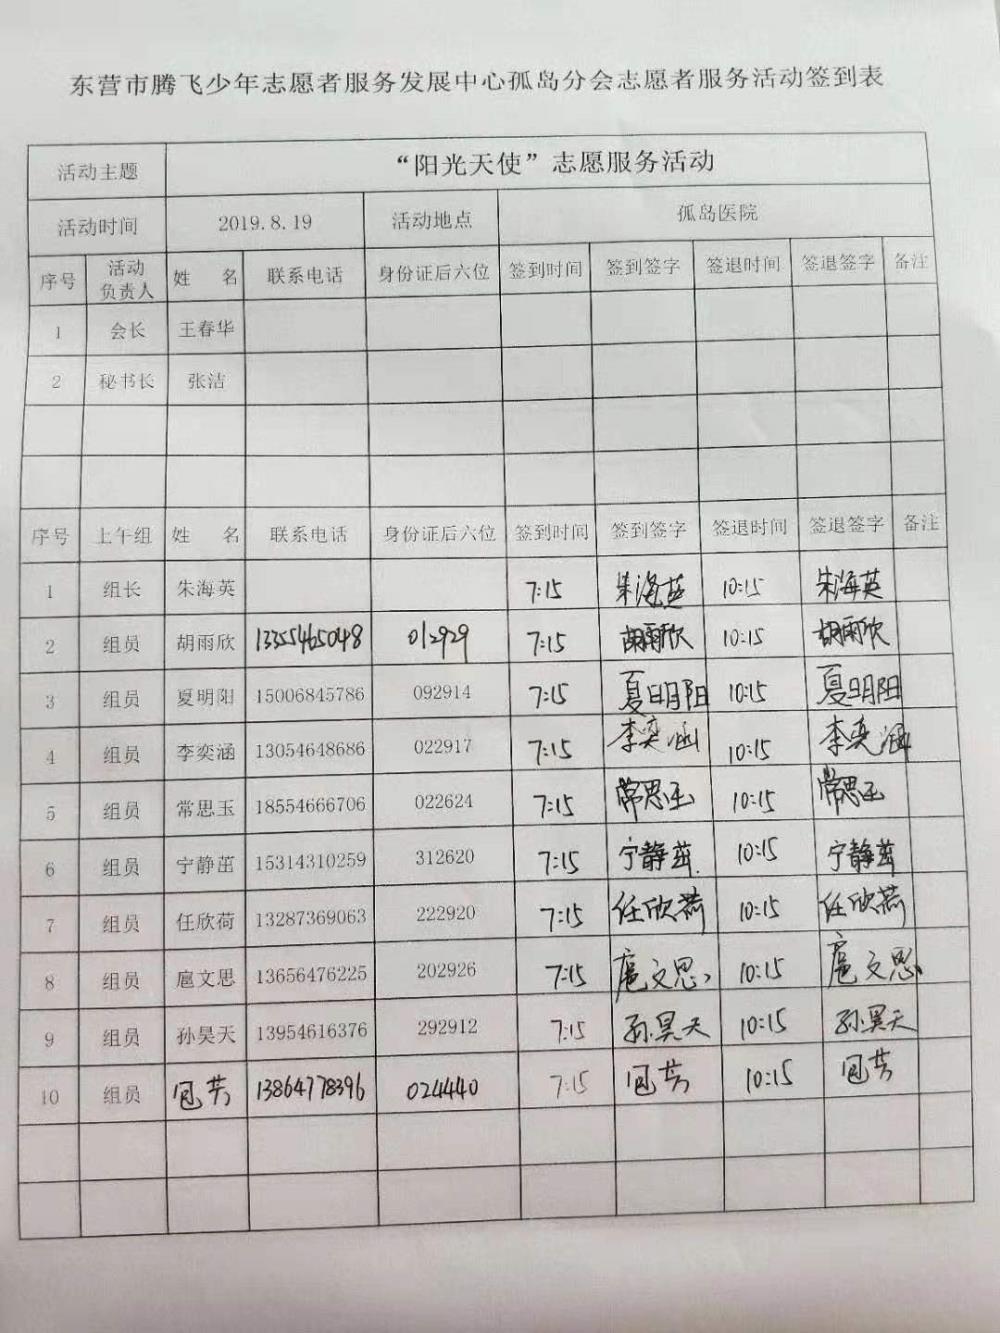 东营市腾飞少年志愿者服务发展中心孤岛分会志愿者服务活动签到表
活动主题 “阳光天使”志愿服务活动
活动时间 2019.8.19 活动地点 孤岛医院
序号 活动负责人 姓 名 联系电话 身份证后六位 签到时间 签到签字 签退时间 签退签字 备注
1 会长 王春华
2 秘书长 张洁
序号 上午组 姓 名 联系电话 身份证后六位 签到时间 签到签字 签退时间 签退签字 备注
1 组长 朱海英 7:15 朱海英 10:15 朱海英
2 组员 胡雨欣 13355465048 012929 7:15 胡雨欣 10:15 胡雨欣
3 组员 夏明阳 15006845786 092914 7:15 夏明阳 10:15 夏明阳
4 组员 李奕涵 13054648686 022917 7:15 李奕涵 10:15 李奕涵
5 组员 常思玉 18554666706 022624 7:15 常思玉 10:15 常思玉
6 组员 宁静茁 15314310259 312620 7:15 宁静茁 10:15 宁静茁
7 组员 任欣荷 13287369063 222920 7:15 任欣荷 10:15 任欣荷
8 组员 扈文思 13656476225 202926 7:15 扈文思 10:15 扈文思
9 组员 孙昊天 13954616376 292912 7:15 孙昊天 10:15 孙昊天
10 组员 13864778396 024440 7:15 10:15